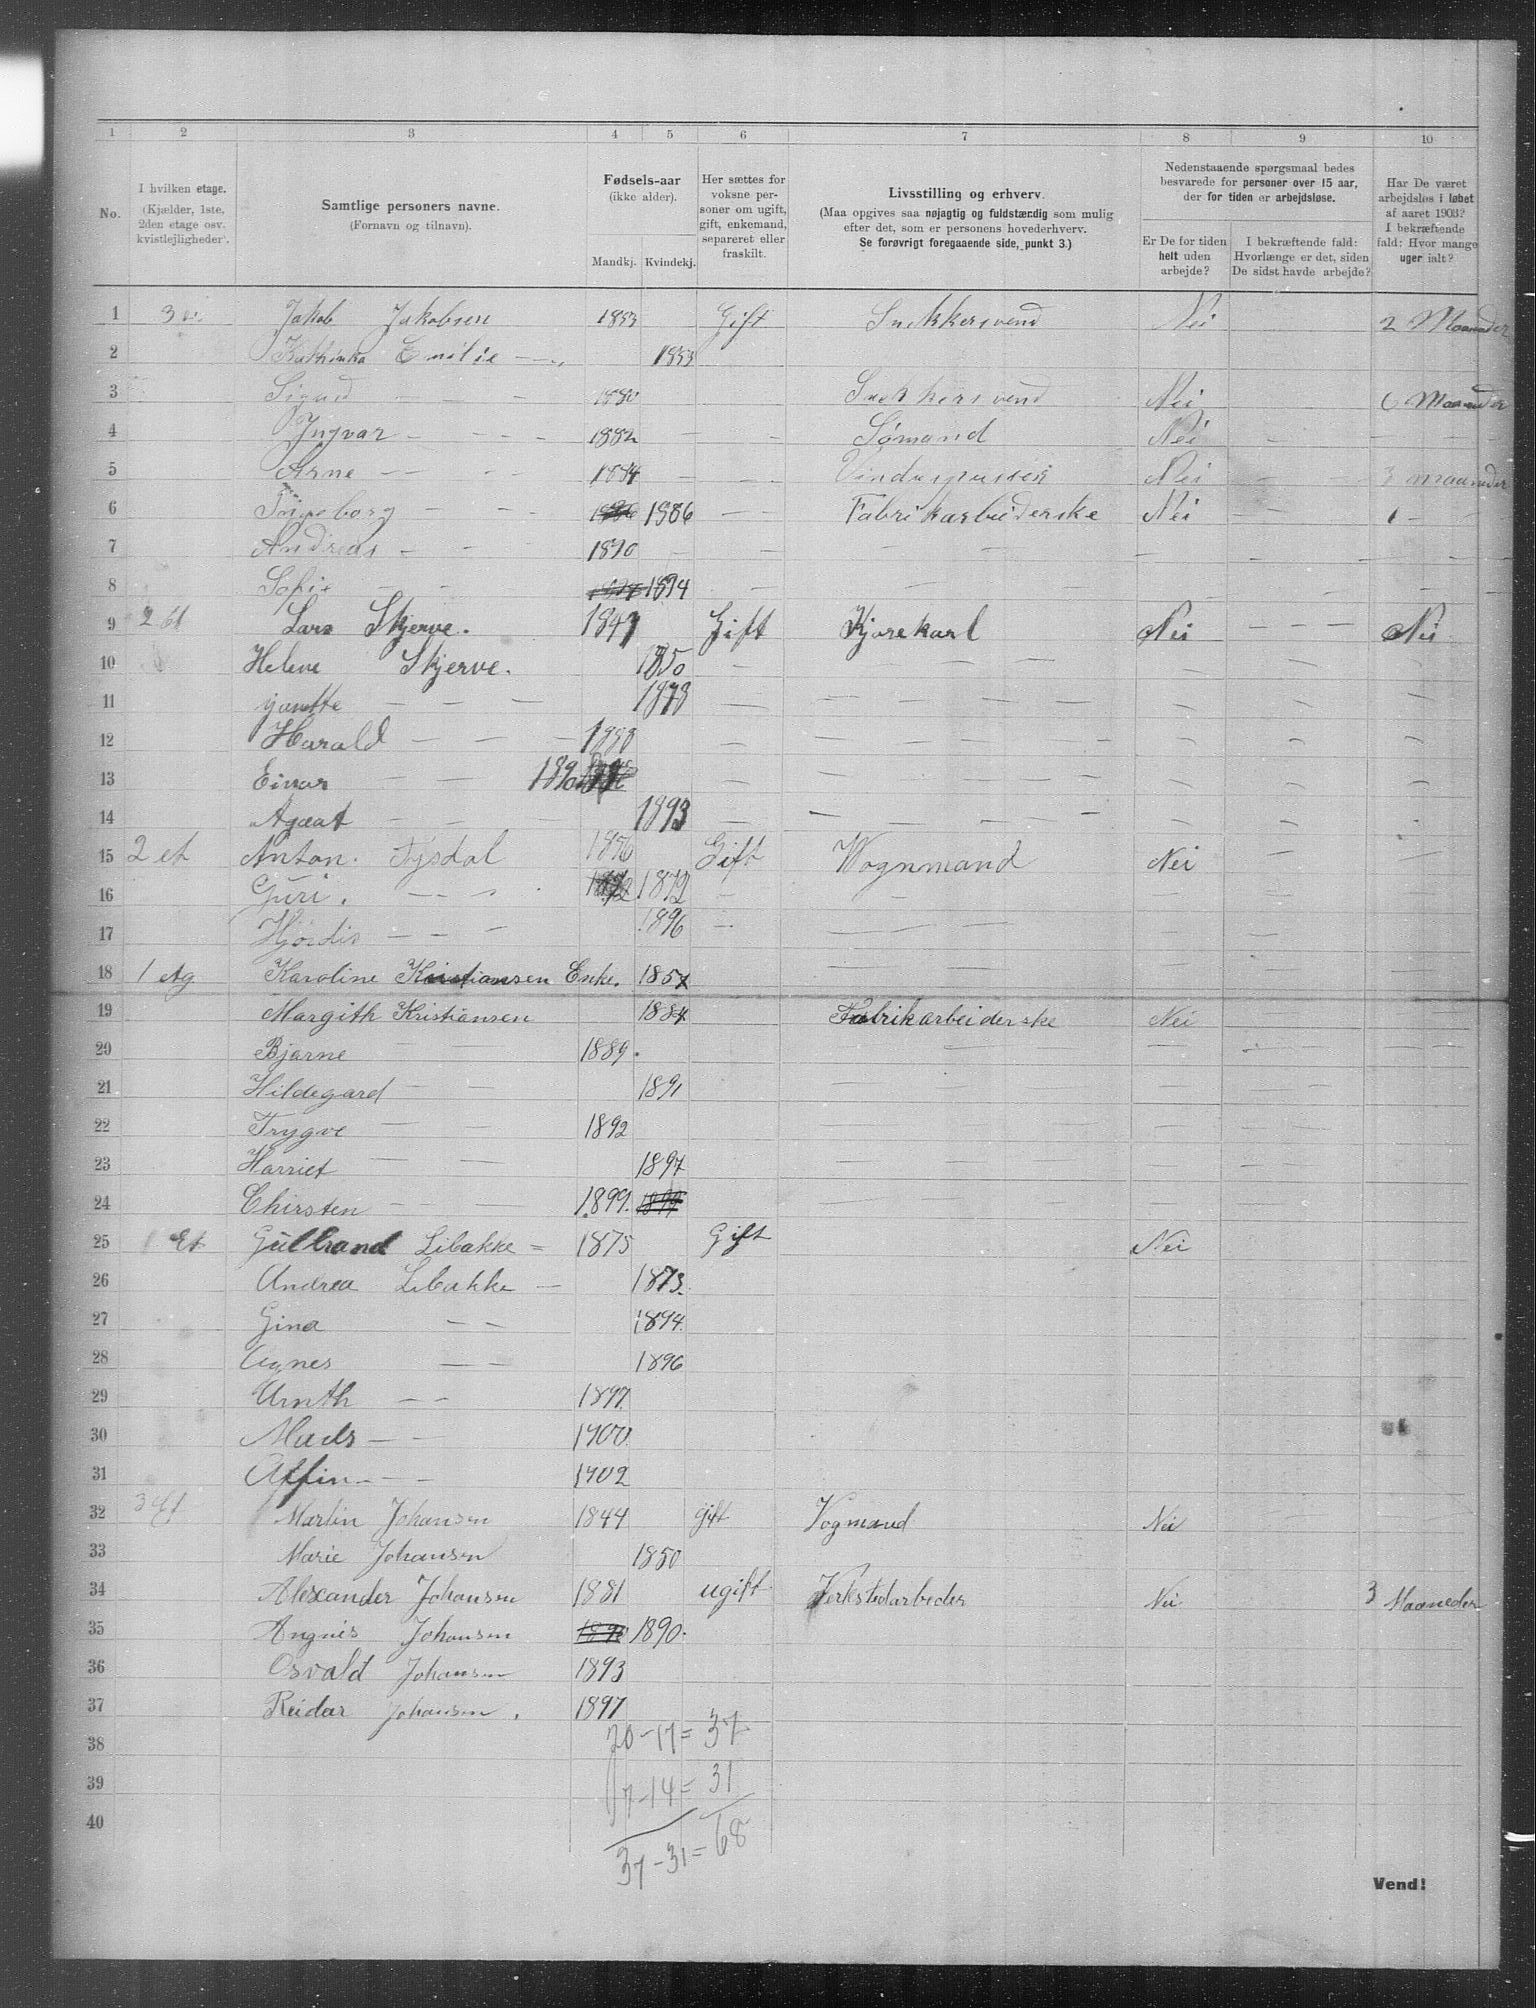 1 2 3 4 5 6 7 8 9 10
No.
I hvilken etage.
(Kjælder, 1ste,
2den etage osv.
kvistlejligheder).
Samtlige personers navne.
(Fornavn og tilnavn).
Fødsels-aar
(ikke alder).
Mandkj. Kvindekj.
Her sættes for
voksne per-
soner om ugift,
gift, enkemand,
separeret eller
fraskilt.
Livsstilling og erhverv.
(Maa opgives saa nøjagtig og fuldstændig som mulig
efter det, som er personens hovederhverv.
Se forøvrigt foregaaende side, punkt 3.)
Nedenstaaende spørgsmaal bedes
besvarede for personer over 15 aar,
der for tiden er arbejdsløse.
Er De for tiden
helt uden
arbejde?
I bekræftende fald:
Hvorlænge er det, siden
De sidst havde arbejde?
Har De været
arbejdsløs i løbet
af aaret 1903?
I bekræftende
fald: Hvor mange
uger ialt?
1 Jakob Jakobsen 1853 Gift Snekkersvend Nei 2 Maaneder
2 Kathinka Emilie — 1853
3 Sigurd — — — 1880 Snekkersvend Nei Maaneder
4 Yngvar — — — 1882 — — Sømand Nei — — — —
5 Arne — — — 1884 — — Nei — — 3 maaneder
6 Ingeborg — — 1886 — — Fabrikarbeiderske Nei — — 1 — —
7 Andreas — — — 1890 — — — — — — — — —
8 Sofie — — 1894 — — — — —
9 2 et Lars Skjerve. 1847 Gift Kjørekarl Nei — — — Nei
10 Helene Skjerve. 1850 — — — — — — —
11 — — — 1878 — — — — — — —
12 Harald — — — 1888 — — — — — — —
13 Einar — — 1890 — — — — — — —
14 Agaat — — 1893 — — — — — — —
15 2 et Anton. Tysdal 1876 Gift Vognmand Nei — —
16 Guri. — — 1872 — — — — —
17 Hjørdis — — — 1896 — — — — —
18 1 etg Karoline Kristiansen Enke. 1857 — — — — —
19 Margith Kristiansen 1884 Fabrikarbeiderske Nei — — —
20 Bjarne — — 1889. — — — — —
21 Hildegard — — 1891 — — — — —
22 Trygve — — 1892 — — — — —
23 Harriet — — 1897 — — — — —
24 Chirsten — — 1899. — — — — —
25 1 Et Gulbrand Libakke = 1875 Gift Nei
26 Andrea Libakke — 1873.
27 Gina — — 1894.
28 Agnes — — 1896
29 Arnth — — 1897.
30 Mads — — 1900.
31 Alfin — — 1902
32 3 Et Martin Johansen 1844 gift Vogmand Nei
33 Marie Johansen 1850
34 Alexander Johansen 1881 ugift Verkstedarbeder Nei 3 Maaneder
35 Angnes Johansen 1890.
36 Osvald Johansen 1893
37 Reidar Johansen. 1897
38 20-17= 37
39 17-14= 31
40 37-31= 68
Vend!